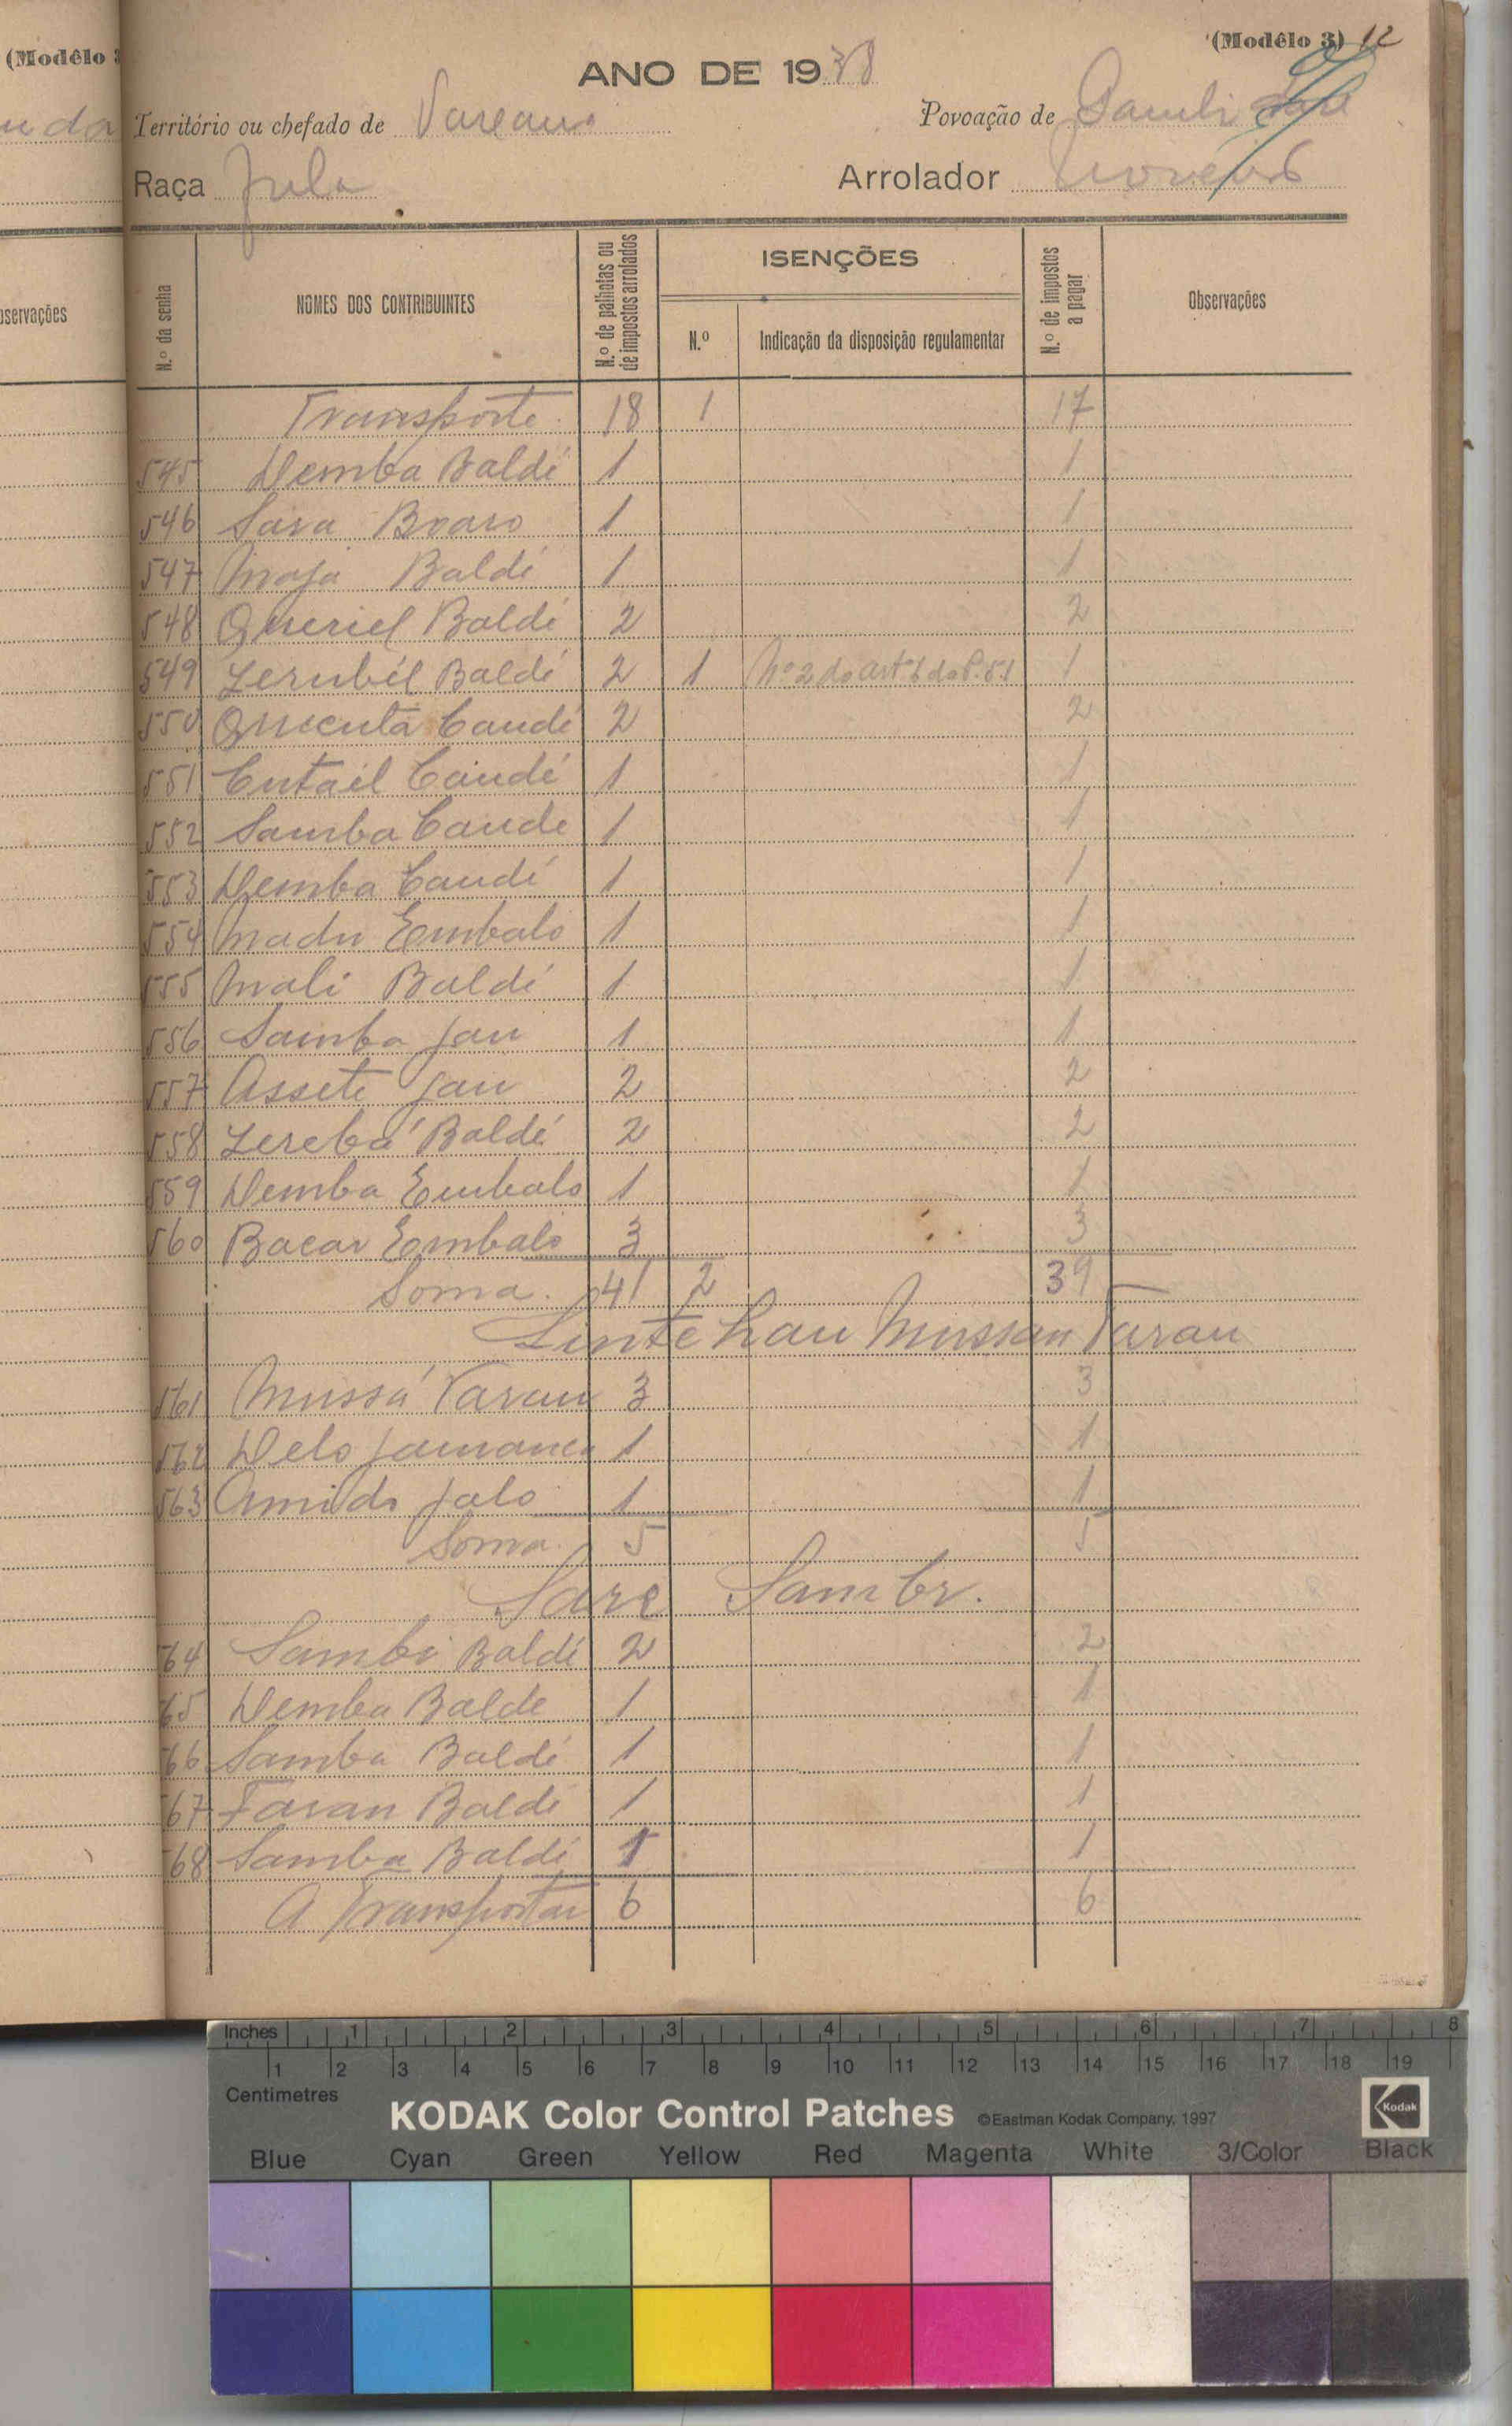 (Modêlo 3) 12
(Modêlo 3
ANO DE 1938
Território ou chefado de
Povoação de
Raça Fula
Arrolador
N.º da senha
NOMES DOS CONTRIBUINTES
N.º de palhotas ou de impostos arrolados
ISENÇÕES
N.º
Indicação da disposição regulamentar
N.º de impostos a pagar
Observações
bservações
Transporte 18 1 17
545 Demba Baldé 1 1
546 1 1
547 Baldé 1 1
548 Queriel Baldé 2 2
549 Baldé 2 1 Nº 2 do artº 6 do 1
550 Quecuta Candé 2 2
551 Candé 1 1
552 Samba Cande 1 1
553 Demba Candé 1 1
554 Madu Embalo 1 1
555 Mali Baldé 1 1
556 Samba Jau 1 1
557 Assete Jau 2 2
558 Baldé 2 2
559 Demba Embalo 1 1
560 Bacar Embalo 3 3
Soma. 41 2 39
561 Mussá 3 3
562 Delo Jamanca 1 1
563 Amido Jalo 1 1
Soma 5 5
Sare
64 Baldé 2 2
65 Demba Balde 1 1
66 Samba Baldé 1 1
67 Faran Baldé 1 1
68 Samba Baldé 1 1
A Transportar 6 6
Inches 1 2 3 4 5 6 7 8
1 2 3 4 5 6 7 8 9 10 11 12 13 14 15 16 17 18 19
Centimetres
KODAK Color Control Patches ©Eastman Kodak Company, 1997 Kodak
Blue Cyan Green Yellow Red Magenta White 3/Color Black